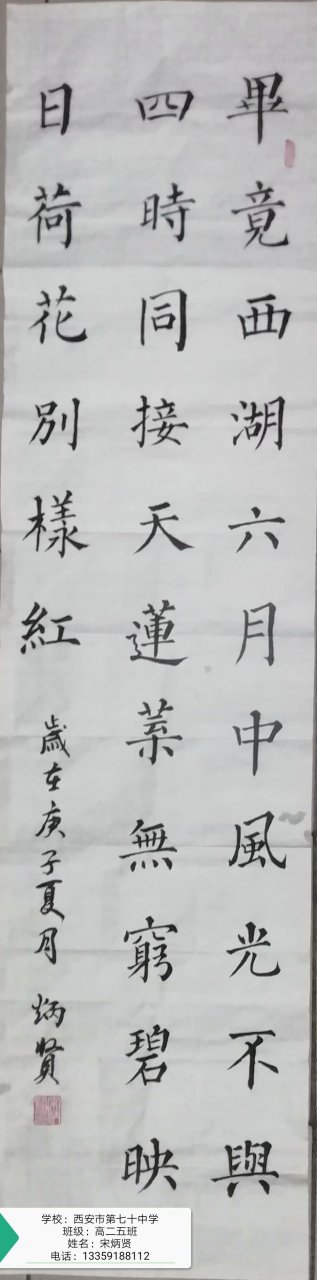 畢竟西湖六月中風光不與
四時同接天蓮葉無窮碧映
日荷花別樣紅
歲在庚子夏月 炳賢
学校：西安市第七十中学
班级：高二五班
姓名：宋炳贤
电话：13359188112